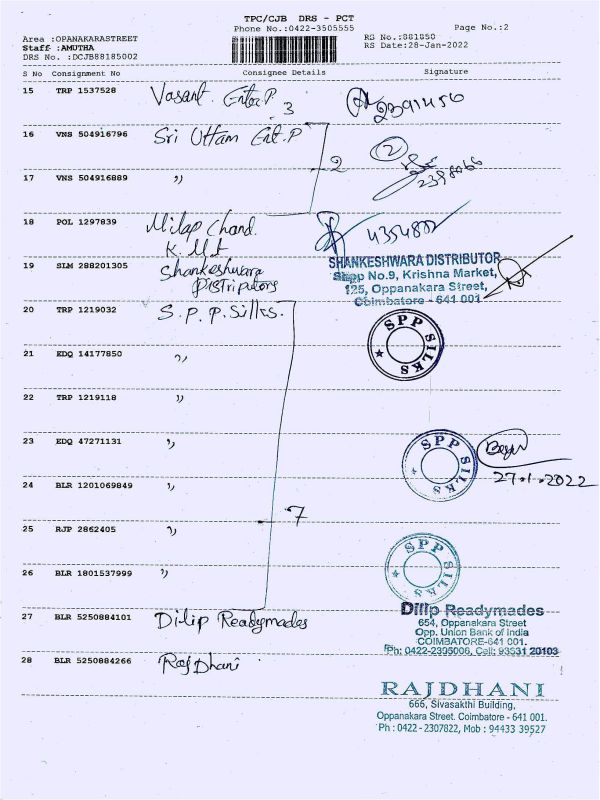 TPC/CJB DRS - PCT
Phone No.:0422-3505555
Page No.:2
Area :OPANAKARASTREET
Staff :AMUTHA
DRS No. :DCJB88185002
RS No.:881850
RS Date:28-Jan-2022
S No Consignment No Consignee Details Signature
15 TRP 1537528 Vasant Enter.P 3 2391456
16 VNS 504916796 Sri Uttam Ent.P
2 2
2398066
17 VNS 504916889 "
18 POL 1297839 Milap Chand. 4354802
K. Mt
19 SLM 288201305 Shankeshwara
Distributors
SHANKESHWARA DISTRIBUTOR
Shop No.9, Krishna Market,
125, Oppanakara Street,
Coimbatore - 641 001
20 TRP 1219032 S. P. P. Silks.
SPP SILKS
21 EDQ 14177850 "
22 TRP 1219118 "
23 EDQ 47271131 "
SPP SILKS
27.1.2022
24 BLR 1201069849 "
7
25 RJP 2862405 "
SPP SILKS
26 BLR 1801537999 "
27 BLR 5250884101 Dilip Readymades
Dilip Readymades
654, Oppanakara Street
Opp. Union Bank of India
COIMBATORE-641 001.
Ph: 0422-2395006, Cell: 93631 20103
28 BLR 5250884266 RajDhani
RAJDHANI
666, Sivasakthi Building,
Oppanakara Street. Coimbatore - 641 001.
Ph : 0422 - 2307822, Mob : 94433 39527